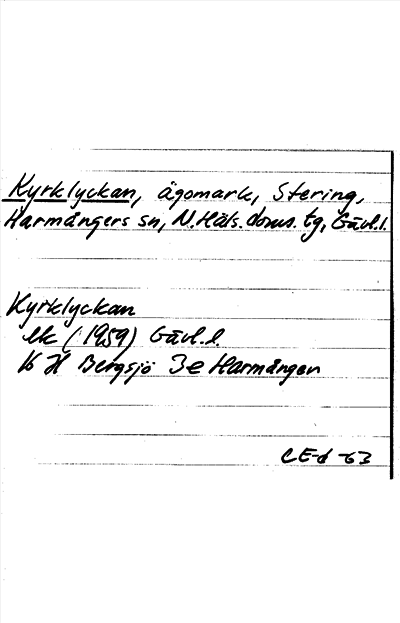 Kyrklyckan, ägomark, Stering,
Harmångers sn, N.Häls. doms. tg, Gävl.l.
Kyrklyckan
Ek (1959) Gävl.l.
16 H Bergsjö 3e Harmången
CE-d -63